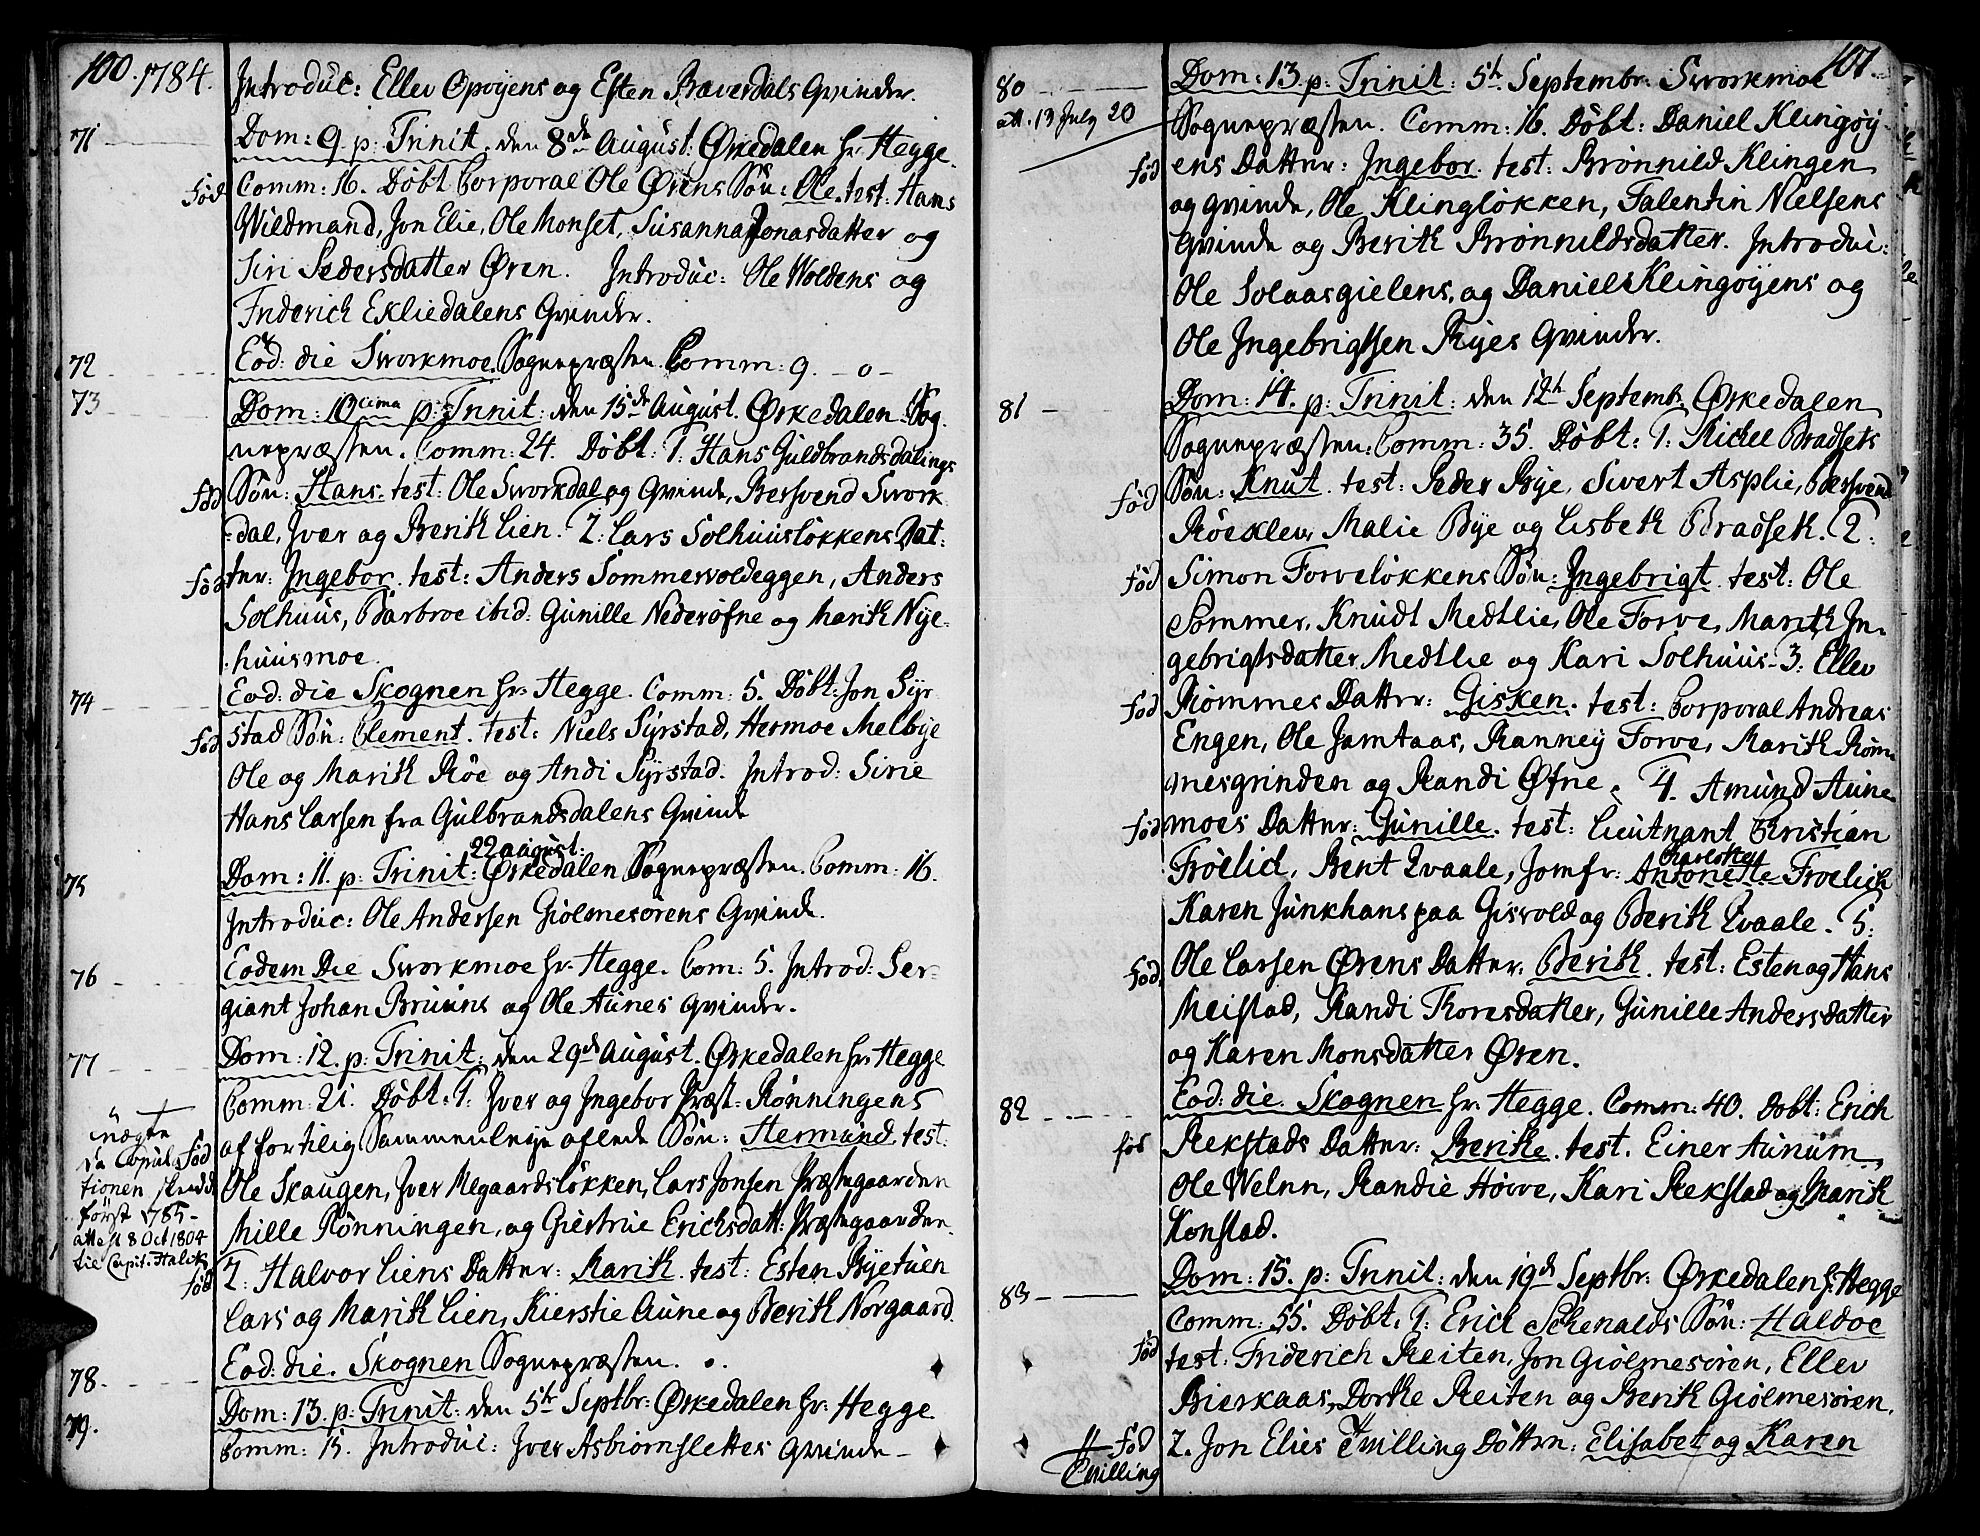 100. 1784.
Introduc: Ellev Opøyens og Esten Bæverdals Qvinder.
71 Dom: 9. p: Trinit. den 8de August: Ørkedalen hr: Hegge.
Comm: 16. Døbt Corporal Ole Ørens Søn: Ole. test: Hans
fød
Wildmand, Jon Elie, Ole Monset, Susanna Jonasdatter og
Siri Pedersdatter Øren. Introduc: Ole Woldens og
Friderich Ekliedalens Qvinder.
72 Eod: die Sworkmoe. Sognepræsten. Comm: 9. — o —
73 Dom: 10cima p: Trinit: den 15de August. Ørkedalen Sog-
nepræsten. Comm: 24. Døbt: 1. Hans Guldbrandsdalings
fød Søn: Hans. test: Ole Sworkdal og Qvinde, Bersvend Swork-
dal, Iver og Berith Lien. 2. Lars Solhuusløkkens Dat-
fød ter: Ingebor. test: Anders Sommervoldeggen, Anders
Solhuus, Barbroe ibid: Gunille Nederøfne og Marith Nye-
huusmoe.
74 Eod: die Skognen hr: Hegge. Comm: 5. Døbt: Jon Syr-
fød stad Søn: Clement. test: Niels Syrstad, Hermoe Melbye
Ole og Marith Røe og Andi Syrstad. Introd: Sirie
Hans Larsen fra Gulbrandsdalens Qvinde
22 august:
75 Dom: 11. p: Trinit: Ørkedalen Sognepræsten. Comm: 16.
Introduc: Ole Andersen Giølmesørens Qvinde.
76 Eodem Die Sworkmoe hr: Hegge. Com: 5. Introd: Ser-
giant Johan Bruuns og Ole Aunes Qvinder.
77 Dom: 12. p: Trinit: den 29de August. Ørkedalen hr: Hegge
Comm: 21. Døbt: 1. Iver og Ingebor Præst-Rønningens
af fortilig Sammenleye aflede Søn: Hermund. test:
Ole Skaugen, Iver Megaardsløkken, Lars Jonsen Præstegaarden
Mille Rønningen, og Giertrue Erichsdatt: Præstegaarden.
uægte
da Copula- fød
tionen skedde
først 1785 -
att. d 8 Oct 1804
til Capit. Halck
fød 2. Halvor Liens Datter: Marith. test: Esten Byetuen
Lars og Marith Lien, Kierstie Aune og Berith Norgaard.
78. Eod: die. Skognen Sognepræsten. o.
79. Dom: 13. p: Trinit: den 5te Septbr: Ørkedalen hr: Hegge
Comm: 15. Introduc: Iver Asbiørnslettes Qvinde —
101.
80 Dom: 13. p: Trinit: 5te Septembr: Sworkmoe
att. 13 July 20
Sognepræsten. Comm: 16. Døbt: Daniel Klingøy-
fød ens Datter: Ingebor. test: Brønnild Klingen
og Qvinde, Ole Klingløkken, Falentin Nielsens
Qvinde og Berith Brønnildsdatter. Introduc:
Ole Solaasgielens, og Daniel Klingøyens og
Ole Ingebrigtsen Ryes Qvinder.
81 Dom: 14. p: Trinit: den 12te Septemb. Ørkedalen
Sognepræsten: Comm: 35. Døbt: 1. Michel Bradsets
fød Søn: Knut. test: Peder Bye, Sivert Asplie, Bersvend
Røeklev, Malie Bye og Lisbeth Bradseth. 2:
fød Simon Forveløkkens Søn: Ingebrigt. test: Ole
Sommer, Knudt Medtlie, Ole Forve, Marith In-
gebrigtsdatter Medtlie og Kari Solhuus. 3. Ellev
fød Rømmes Datter: Gisken. test: Corporal Andreas
Engen, Ole Jamtaas, Ranney Forve, Marith Røm-
mesgrinden og Randi Øfne. 4. Amund Aune
fød moes Datter: Gunille. test: Lieutnant Christian
Frøelid, Bent Qvaale, Jomfr: Antonette Froelich
Charlotte
Karen Junkhans paa Gisvold og Berith Qvaale. 5:
fød Ole Larsen Ørens Datter: Berith. test: Esten og Hans
Meistad, Randi Thoresdatter, Gunille Andersdatter
og Karen Monsdatter Øren.
82 Eod: die. Skognen hr: Hegge. Comm: 40. Døbt: Erich
fød Rekstads Datter: Berithe. test. Einer Aunum
Ole Welnn, Randie Hovve, Kari Rekstad og Marith
Konstad.
83 Dom: 15. p: Trinit: den 19de Septbr: Ørkedalen hr: Hegge
Comm: 55. Døbt: 1. Erich Schenalds Søn: Haldoe
fød test: Friderich Reiten, Jon Giølmesøren, Ellev
Bierkaas, Dorthe Reiten og Berith Giølmesøren.
fød 2. Jon Elies Tvilling Døttre: Elisabet og Karen
Tvilling